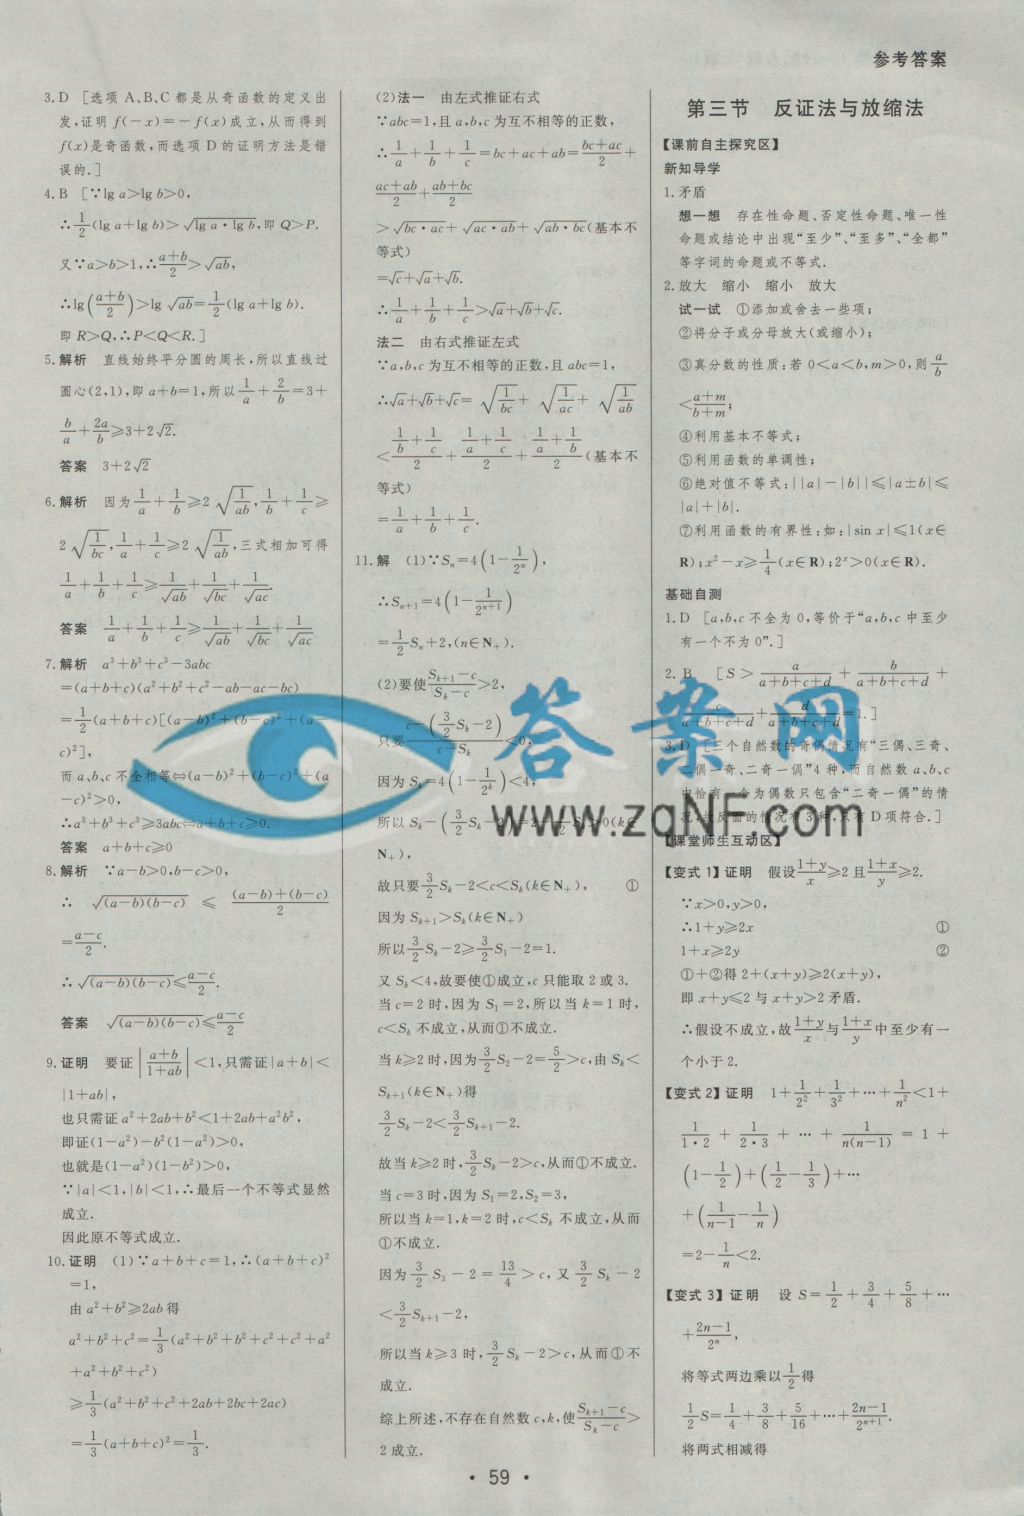 参考答案
3.D [选项 A、B、C 都是从奇函数的定义出
发,证明 f(-x)=-f(x)成立,从而得到
f(x)是奇函数,而选项 D 的证明方法是错
误的.]
4.B [∵lg a>lg b>0,
∴1/2(lg a+lg b)>√(lg a·lg b),即 Q>P.
又∵a>b>1,∴(a+b)/2>√(ab),
∴lg((a+b)/2)>lg √(ab)=1/2(lg a+lg b).
即 R>Q,∴P<Q<R.]
5.解析 直线始终平分圆的周长,所以直线过
圆心(2,1),即 a+b=1,所以 1/a+2/b=3+
b/a+2a/b≥3+2√2.
答案 3+2√2
6.解析 因为 1/a+1/b≥2√(1/ab),1/b+1/c≥
2√(1/bc),1/a+1/c≥2√(1/ab),三式相加可得
1/a+1/b+1/c≥1/√(ab)+1/√(bc)+1/√(ac).
答案 1/a+1/b+1/c≥1/√(ab)+1/√(bc)+1/√(ac)
7.解析 a³+b³+c³-3abc
=(a+b+c)(a²+b²+c²-ab-ac-bc)
=1/2(a+b+c)[(a-b)²+(b-c)²+(a-
c)²],
而 a、b、c 不全相等⇔(a-b)²+(b-c)²+(a
-c)²>0.
∴a³+b³+c³≥3abc⇔a+b+c≥0.
答案 a+b+c≥0
8.解析 ∵a-b>0,b-c>0,
∴ √((a-b)(b-c)) ≤ ((a-b)+(b-c))/2
=(a-c)/2.
∴√((a-b)(b-c))≤(a-c)/2.
答案 √((a-b)(b-c))≤(a-c)/2
9.证明 要证|(a+b)/(1+ab)|<1,只需证|a+b|<
|1+ab|,
也只需证 a²+2ab+b²<1+2ab+a²b²,
即证(1-a²)-b²(1-a²)>0,
也就是(1-a²)(1-b²)>0,
∵|a|<1,|b|<1,∴最后一个不等式显然
成立.
因此原不等式成立.
10.证明 (1)∵a+b+c=1,∴(a+b+c)²
=1,
由 a²+b²≥2ab 得
a²+b²+c²=1/3(a²+b²+b²+c²+c²+a²
+a²+b²+c²)
≥1/3(a²+b²+c²+2ab+2bc+2ac)
=1/3(a+b+c)²=1/3.
(2)法一 由左式推证右式
∵abc=1,且 a,b,c 为互不相等的正数,
∴1/a+1/b+1/c=bc+ac+ab=(bc+ac)/2+
(ac+ab)/2+(ab+bc)/2
>√(bc·ac)+√(ac·ab)+√(ab·bc)(基本不
等式)
=√c+√a+√b.
∴1/a+1/b+1/c>√a+√b+√c.
法二 由右式推证左式
∵a,b,c 为互不相等的正数,且 abc=1,
∴√a+√b+√c=√(1/bc)+√(1/ac)+√(1/ab)
<(1/b+1/c)/2+(1/a+1/c)/2+(1/a+1/b)/2(基本不
等式)
=1/a+1/b+1/c.
11.解 (1)∵Sₙ=4(1-1/2ⁿ),
∴Sₙ₊₁=4(1-1/2ⁿ⁺¹)
=1/2Sₙ+2,(n∈N₊).
(2)要使(Sₖ₊₁-c)/(Sₖ-c)>2,
只要(c-(3/2Sₖ-2))/(c-Sₖ)<0,
因为 Sₖ=4(1-1/2ᵏ)<4,
所以 Sₖ-(3/2Sₖ-2)=2-1/2Sₖ>0(k∈
N₊),
故只要 3/2Sₖ-2<c<Sₖ(k∈N₊), ①
因为 Sₖ₊₁>Sₖ(k∈N₊)
所以 3/2Sₖ-2≥3/2S₁-2=1.
又 Sₖ<4,故要使①成立,c 只能取 2 或 3.
当 c=2 时,因为 S₁=2,所以当 k=1 时,
c<Sₖ 不成立,从而①不成立.
当 k≥2 时,因为 3/2S₂-2=5/2>c,由 Sₖ<
Sₖ₊₁(k∈N₊)得
3/2Sₖ-2<3/2Sₖ₊₁-2.
故当 k≥2 时,3/2Sₖ-2>c,从而①不成立.
当 c=3 时,因为 S₁=2,S₂=3,
所以当 k=1,k=2 时,c<Sₖ 不成立,从而
①不成立.
因为 3/2S₃-2=13/4>c,又 3/2Sₖ-2
<3/2Sₖ₊₁-2,
所以当 k≥3 时,3/2Sₖ-2>c,从而①不
成立.
综上所述,不存在自然数 c,k,使(Sₖ₊₁-c)/(Sₖ-c)>
2 成立.
第三节 反证法与放缩法
【课前自主探究区】
新知导学
1.矛盾
想一想 存在性命题、否定性命题、唯一性
命题或结论中出现“至少”、“至多”、“全都”
等字词的命题或不等式.
2.放大 缩小 缩小 放大
试一试 ①添加或舍去一些项;
②将分子或分母放大(或缩小);
③真分数的性质:若 0<a<b,m>0,则 a/b
<(a+m)/(b+m);
④利用基本不等式;
⑤利用函数的单调性;
⑥绝对值不等式:||a|-|b||≤|a±b|≤
|a|+|b|.
⑦利用函数的有界性:如:|sin x|≤1(x∈
R);x²-x≥1/4(x∈R);2ˣ>0(x∈R).
基础自测
1.D [a,b,c 不全为 0,等价于“a,b,c 中至少
有一个不为 0”.]
2.B [S>a/(a+b+c+d)+b/(a+b+c+d)+
c/(a+b+c+d)+d/(a+b+c+d)=1.]
3.D [三个自然数的奇偶情况有“三偶、三奇、
二偶一奇、二奇一偶”4 种,而自然数 a、b、c
中恰有一个为偶数只包含“二奇一偶”的情
况,故反面的情况有 3 种,只有 D 项符合.]
【课堂师生互动区】
【变式 1】证明 假设(1+y)/x≥2 且(1+x)/y≥2.
∵x>0,y>0,
∴1+y≥2x ①
1+x≥2y ②
①+②得 2+(x+y)≥2(x+y),
即 x+y≤2 与 x+y>2 矛盾.
∴假设不成立,故(1+y)/x与(1+x)/y中至少有一
个小于 2.
【变式 2】证明 1+1/2²+1/3²+…+1/n²<1+
1/(1·2)+1/(2·3)+…+1/(n(n-1))=1+
(1-1/2)+(1/2-1/3)+…
+(1/(n-1)-1/n)
=2-1/n<2.
【变式 3】证明 设 S=1/2+3/4+5/8+…
+(2n-1)/2ⁿ,
将等式两边乘以1/2得
1/2S=1/4+3/8+5/16+…+(2n-1)/2ⁿ⁺¹.
将两式相减得
答案网
www.zqNF.com
· 59 ·